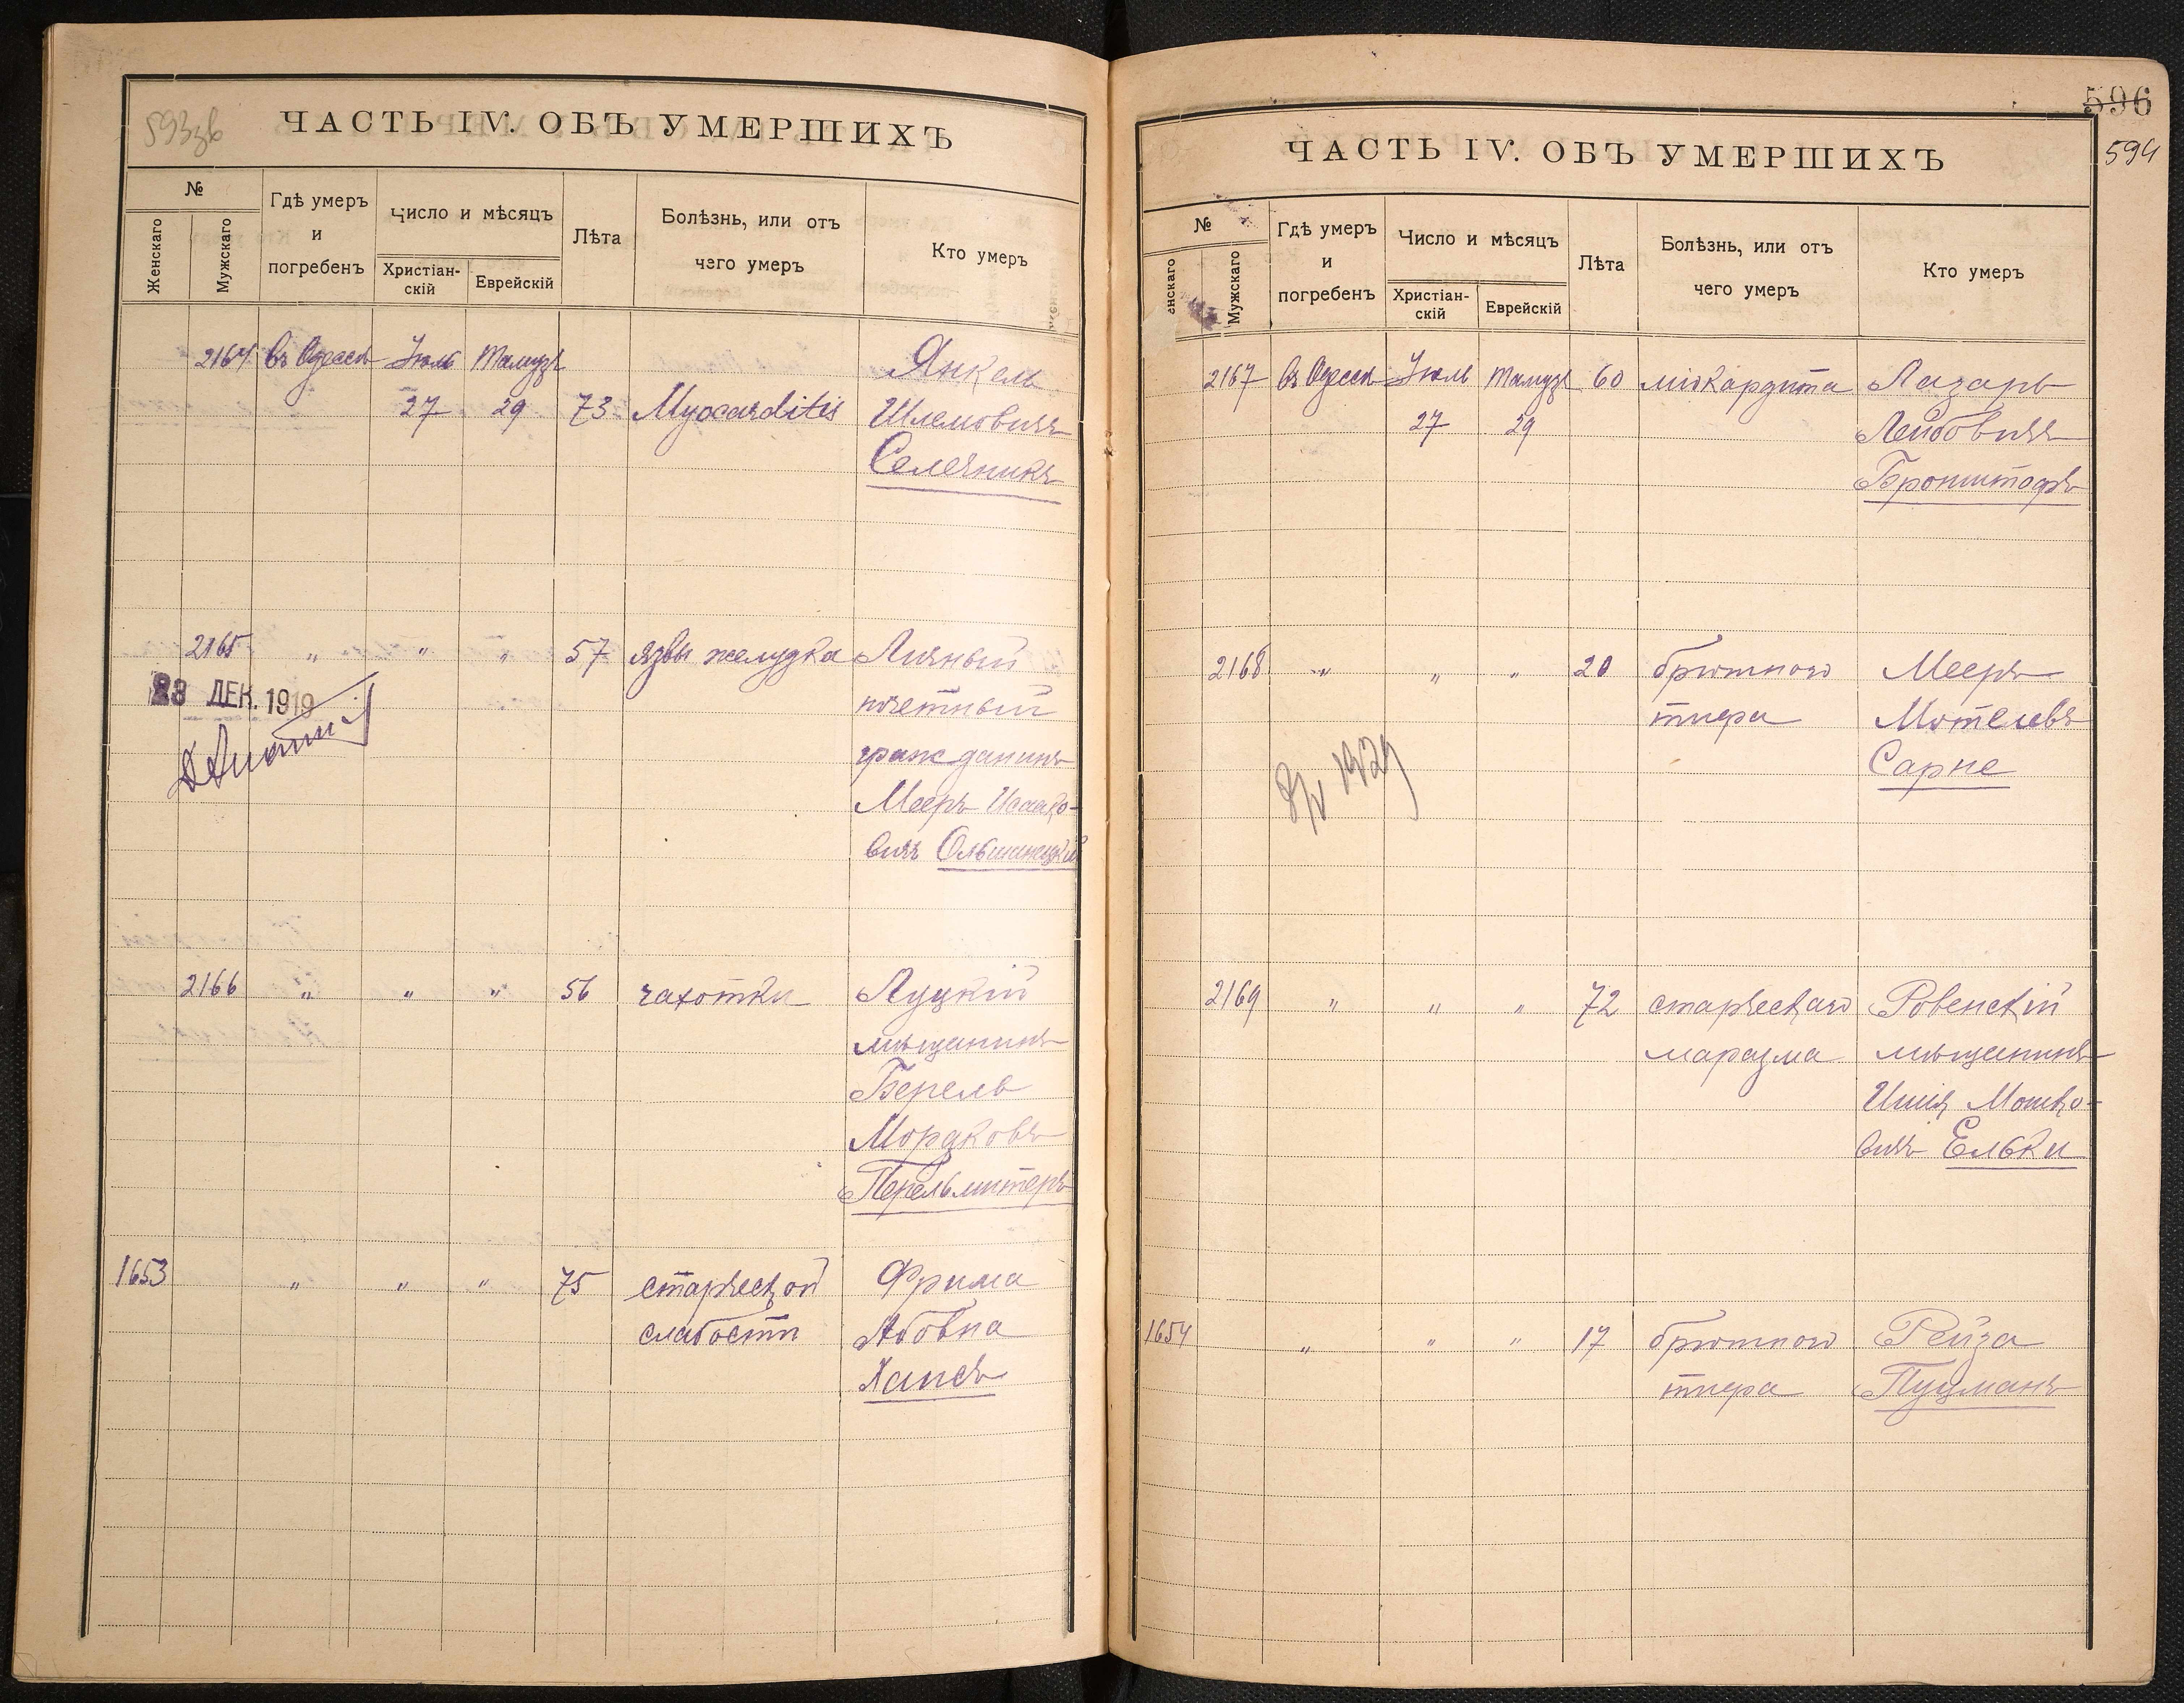 593зв
ЧАСТЬ IV. ОБЪ УМЕРШИХЪ
№
Женскаго
Мужскаго
Гдѣ умеръ
и
погребенъ
Число и мѣсяцъ
Христіан-
скій
Еврейскій
Лѣта
Болѣзнь, или отъ
чего умеръ
Кто умеръ
2164 въ Одессѣ Іюль Тамузъ Янкель
27 29 73 Myocarditis Шлемовичъ
Селечникъ
2165 " " " 57 язвы желудка Личный
23 ДЕК. 1919 почетный
гражданинъ
Мееръ Исаако-
вичъ Ольшанецкій
2166 " " " 56 чахотки Луцкій
мѣщанинъ
Берель
Мордковъ
Перельмитеръ
1653 " " " 75 старческой Фрима
слабости Абовна
Хаисъ
596
594
ЧАСТЬ IV. ОБЪ УМЕРШИХЪ
№
енскаго
Мужскаго
Гдѣ умеръ
и
погребенъ
Число и мѣсяцъ
Христіан-
скій
Еврейскій
Лѣта
Болѣзнь, или отъ
чего умеръ
Кто умеръ
2167 въ Одессѣ Іюль Тамузъ 60 міокардита Лазарь
27 29 Лейбовичъ
Бронштофъ
2168 " " " 20 брюшного Мееръ
тифа Мотелевъ
Сарне
2169 " " " 72 старческаго Ровенскій
маразма мѣщанинъ
Ицикъ Мошко-
вичъ Елька
1654 " " " 17 брюшного Рейза
тифа Пуцманъ